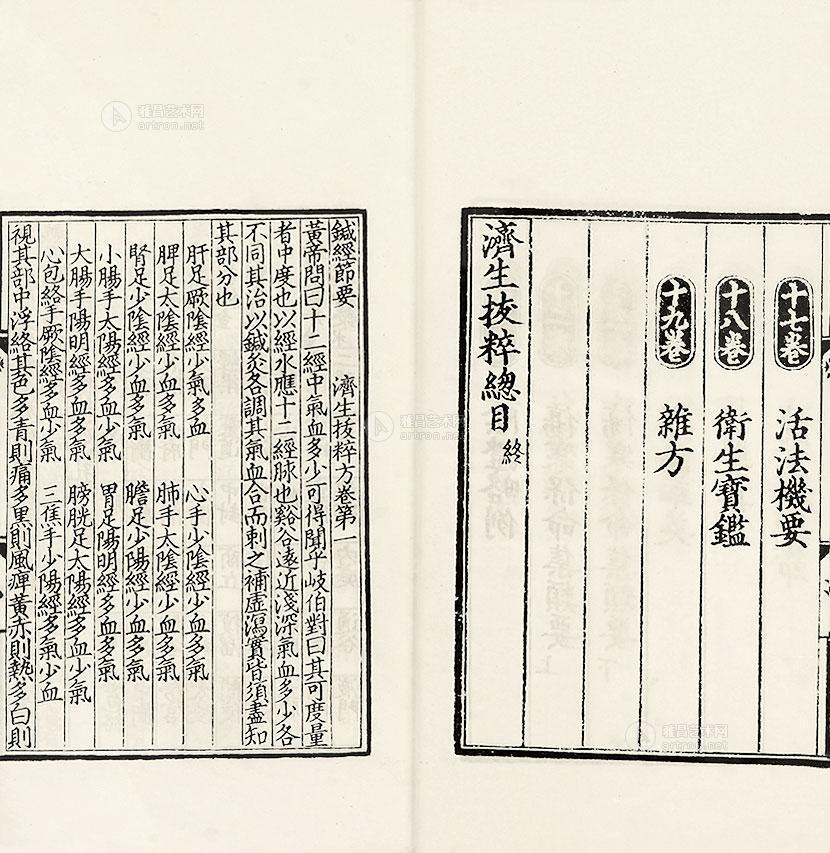 十七卷 活法機要
十八卷 衛生寶鑑
十九卷 雜方
濟生拔粹總目 終
鍼經節要 濟生拔粹方卷第一
黃帝問曰十二經中氣血多少可得聞乎岐伯對曰其可度量
者中度也以經水應十二經脉也谿谷遠近淺深氣血多少各
不同其治以鍼灸各調其氣血合而刺之補虛瀉實皆須盡知
其部分也
肝足厥陰經少氣多血 心手少陰經少血多氣
脾足太陰經少血多氣 肺手太陰經少血多氣
腎足少陰經少血多氣 膽足少陽經少血多氣
小腸手太陽經多血少氣 胃足陽明經多血多氣
大腸手陽明經多血多氣 膀胱足太陽經多血少氣
心包絡手厥陰經多血少氣 三焦手少陽經多氣少血
視其部中浮絡其色多青則痛多黑則風痺黃赤則熱多白則
雅昌艺术网
artron.net
雅昌艺术网
artron.net
雅昌艺术网
artron.net